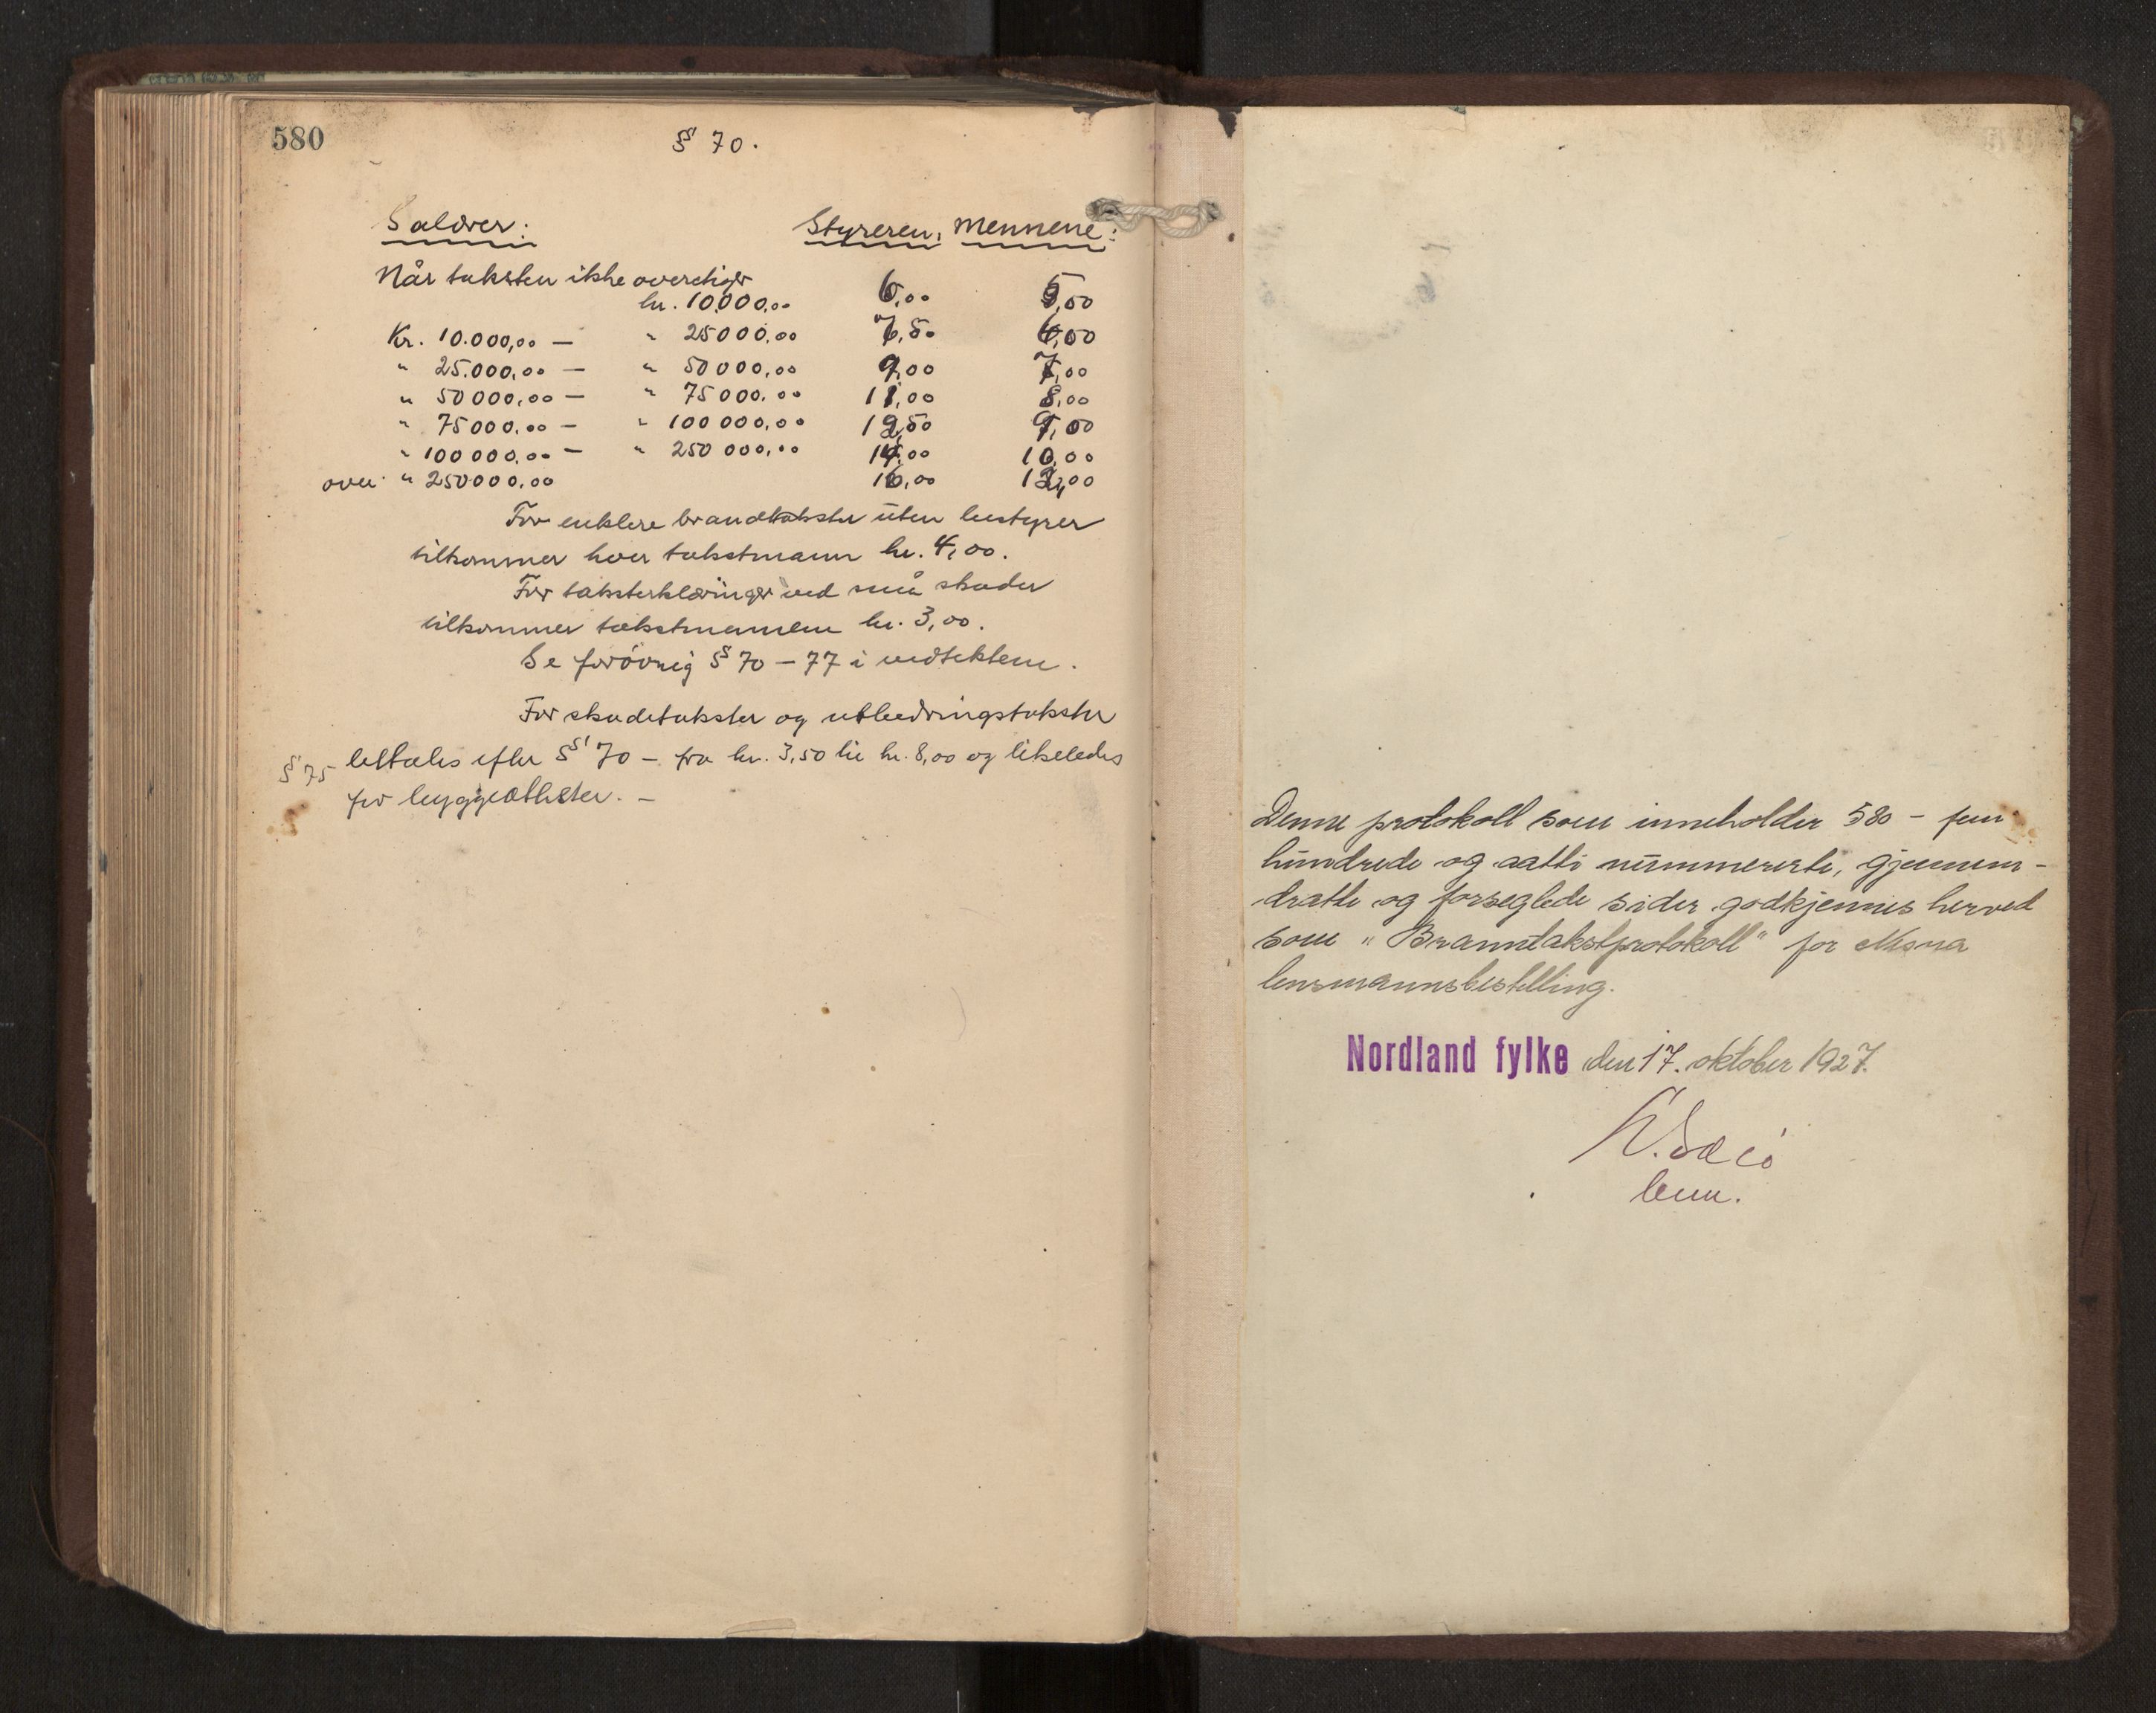 580
§ 70.
Salærer: Styreren: Mennene:
Når taksten ikke overstiger
kr. 10.000,00 6,00 5,00
Kr. 10.000,00 — " 25000,00 7,50 6,00
" 25.000,00 — " 50000,00 9,00 7,00
" 50000,00 — " 75000,00 11,00 8,00
" 75000,00 — " 100000,00 12,50 9,00
" 100000,00 — " 250 000,00 14,00 10,00
over " 250000,00 16,00 12,00
For enklere brandtakster uten bestyrer
tilkommer hver takstmann kr. 4,00.
For taksterklæringer ved små skader
tilkommer takstmennene kr. 3,00.
Se forøvrig § 70 — 77 i vedtektene.
For skadetakster og utbedringstakster
§ 75 bettales efter § 70 — fra kr. 3,50 til kr. 8,00 og likeledes
for byggeattester. —
Denne protokoll som inneholder 580 — fem
hundrede og aatti nummererte, gjennem-
dratte og forseglede sider godkjennes herved
som "Branntakstprotokoll" for
lensmannsbestilling.
Nordland fylke den 17. oktober 1927.